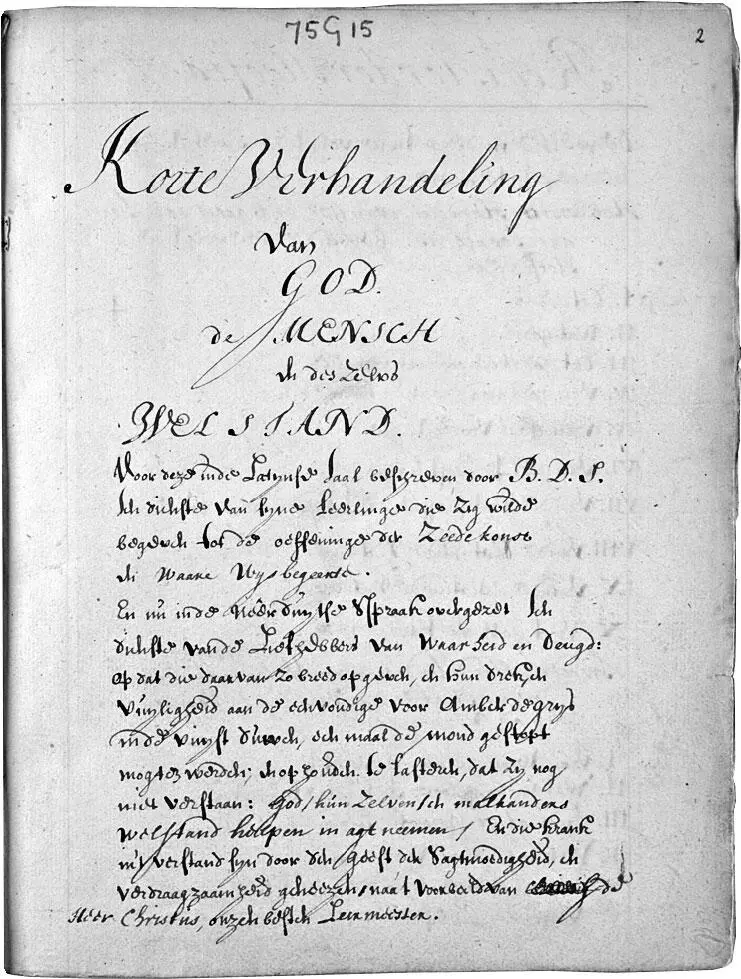 75G15
2
Korte Verhandeling
van
GOD.
de MENSCH
en deszelvs
WELSTAND.
Voor deze inde Latynse Taal beschreven door B. D. S.
ten dienste van syne Leerlinge die zig wilde
begeven tot de oeffeninge der Zeedekonst
en Waare Wysbegeerte.
En nu inde Neêrduytse Spraak overgezet ten
dienste van de Liefhebbers van Waarheid en Deugd:
Op dat die daar van zo breed opgeven, en hun drek, en
vuyligheid aan de eenvoudige voor Amber de grys
inde vuyst duwen, een maal de mond gestopt
mogten werden; en ophouden te lasteren, dat zy nog
niet verstaan: God, hun zelven, en malkanders
welstand helpen in agt neemen, En die krank
in't verstand syn door den geest der Sagtmoedigheid, en
verdraagzaamheid geneezen, na't Voorbeeld van de
Heer Christus, onzen besten Leermeester.